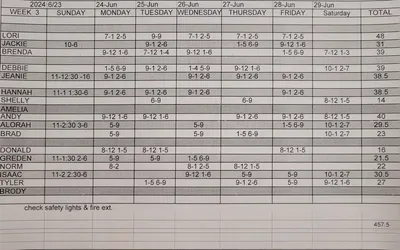 2024 6/23 24-Jun 25-Jun 26-Jun 27-Jun 28-Jun 29-Jun
WEEK 3 SUNDAY MONDAY TUESDAY WEDNESDAY THURSDAY FRIDAY Saturday TOTAL
LORI 7-1 2-5 9-9 7-1 2-5 7-1 2-5 7-1 2-5 48
JACKIE 10-6 9-1 2-6 1-5 6-9 9-12 1-6 31
BRENDA 9-12 1-6 7-12 1-4 9-12 1-6 1-5 6-9 7-12 1-3 39
DEBBIE 1-5 6-9 9-1 2-6 1-4 5-9 9-12 1-6 10-1 2-7 39
JEANIE 11-12:30 -16 9-1 2-6 9-1 2-6 9-1 2-6 9-1 2-6 38.5
HANNAH 11-1 1:30-6 9-1 2-6 9-1 2-6 9-1 2-6 9-1 2-6 38.5
SHELLY 6-9 6-9 8-12 1-5 14
AMELIA
ANDY 9-12 1-6 9-12 1-6 9-1 2-6 9-12 1-6 8-12 1-5 40
ALORAH 11-2:30 3-6 5-9 5-9 5-9 1-5 6-9 10-1 2-7 29.5
BRAD 5-9 1-5 6-9 10-1 2-7 23
DONALD 8-12 1-5 8-12 1-5 16
GREDEN 11-1:30 2-6 5-9 5-9 1-5 6-9 21.5
NORM 8-2 8-1 2-5 8-12 1-5 22
ISAAC 11-2 2:30-6 9-12 1-6 9-1 2-6 5-9 10-1 2-7 30.5
TYLER 1-5 6-9 9-1 2-6 5-9 9-12 1-6 27
BRODY
check safety lights & fire ext.
457.5